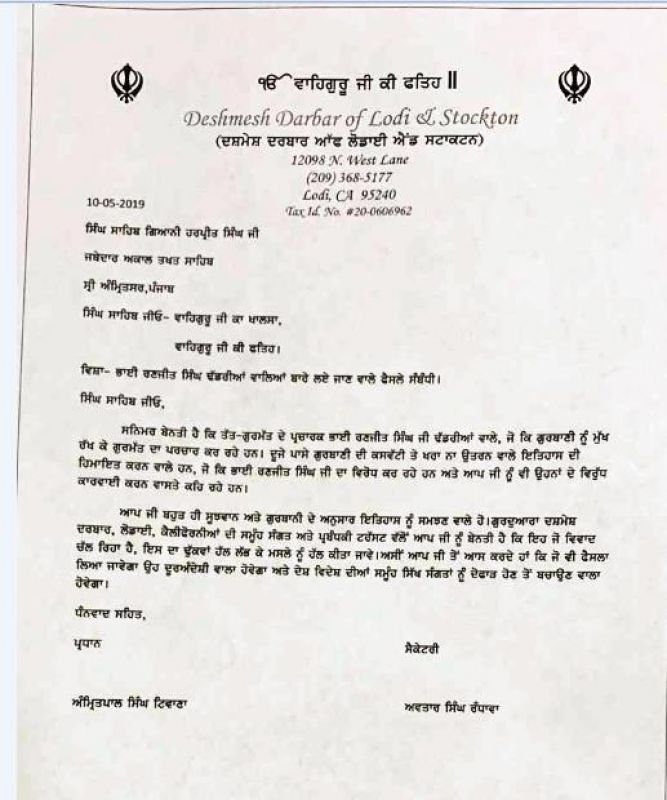 ੴ ਵਾਹਿਗੁਰੂ ਜੀ ਕੀ ਫਤਿਹ ||
Deshmesh Darbar of Lodi & Stockton
(ਦਸ਼ਮੇਸ਼ ਦਰਬਾਰ ਆੱਫ ਲੋਡਾਈ ਐਂਡ ਸਟਾਕਟਨ)
12098 N. West Lane
(209) 368-5177
Lodi, CA 95240
Tax Id. No. #20-0606962
10-05-2019
ਸਿੰਘ ਸਾਹਿਬ ਗਿਆਨੀ ਹਰਪ੍ਰੀਤ ਸਿੰਘ ਜੀ
ਜਥੇਦਾਰ ਅਕਾਲ ਤਖਤ ਸਾਹਿਬ
ਸ੍ਰੀ ਅੰਮ੍ਰਿਤਸਰ,ਪੰਜਾਬ
ਸਿੰਘ ਸਾਹਿਬ ਜੀਓ- ਵਾਹਿਗੁਰੂ ਜੀ ਕਾ ਖਾਲਸਾ,
ਵਾਹਿਗੁਰੂ ਜੀ ਕੀ ਫਤਿਹ।
ਵਿਸ਼ਾ- ਭਾਈ ਰਣਜੀਤ ਸਿੰਘ ਢੱਡਰੀਆਂ ਵਾਲਿਆਂ ਬਾਰੇ ਲਏ ਜਾਣ ਵਾਲੇ ਫੈਸਲੇ ਸੰਬੰਧੀ।
ਸਿੰਘ ਸਾਹਿਬ ਜੀਓ,
ਸਨਿਮਰ ਬੇਨਤੀ ਹੈ ਕਿ ਤੱਤ-ਗੁਰਮੱਤ ਦੇ ਪ੍ਰਚਾਰਕ ਭਾਈ ਰਣਜੀਤ ਸਿੰਘ ਜੀ ਢੱਡਰੀਆਂ ਵਾਲੇ, ਜੋ ਕਿ ਗੁਰਬਾਣੀ ਨੂੰ ਮੁੱਖ
ਰੱਖ ਕੇ ਗੁਰਮੱਤ ਦਾ ਪਰਚਾਰ ਕਰ ਰਹੇ ਹਨ। ਦੂਜੇ ਪਾਸੇ ਗੁਰਬਾਣੀ ਦੀ ਕਸਵੱਟੀ ਤੇ ਖਰਾ ਨਾ ਉਤਰਨ ਵਾਲੇ ਇਤਿਹਾਸ ਦੀ
ਹਿਮਾਇਤ ਕਰਨ ਵਾਲੇ ਹਨ, ਜੋ ਕਿ ਭਾਈ ਰਣਜੀਤ ਸਿੰਘ ਜੀ ਦਾ ਵਿਰੋਧ ਕਰ ਰਹੇ ਹਨ ਅਤੇ ਆਪ ਜੀ ਨੂੰ ਵੀ ਉਹਨਾਂ ਦੇ ਵਿਰੁੱਧ
ਕਾਰਵਾਈ ਕਰਨ ਵਾਸਤੇ ਕਹਿ ਰਹੇ ਹਨ।
ਆਪ ਜੀ ਬਹੁਤ ਹੀ ਸੂਝਵਾਨ ਅਤੇ ਗੁਰਬਾਣੀ ਦੇ ਅਨੁਸਾਰ ਇਤਿਹਾਸ ਨੂੰ ਸਮਝਣ ਵਾਲੇ ਹੋ।ਗੁਰਦੁਆਰਾ ਦਸ਼ਮੇਸ਼
ਦਰਬਾਰ, ਲੋਡਾਈ, ਕੈਲੀਫੋਰਨੀਆਂ ਦੀ ਸਮੂੰਹ ਸੰਗਤ ਅਤੇ ਪ੍ਰਬੰਧਕੀ ਟਰੱਸਟ ਵੱਲੋਂ ਆਪ ਜੀ ਨੂੰ ਬੇਨਤੀ ਹੈ ਕਿ ਇਹ ਜੋ ਵਿਵਾਦ
ਚੱਲ ਰਿਹਾ ਹੈ, ਇਸ ਦਾ ਢੁੱਕਵਾਂ ਹੱਲ ਲੱਭ ਕੇ ਮਸਲੇ ਨੂੰ ਹੱਲ ਕੀਤਾ ਜਾਵੇ।ਅਸੀਂ ਆਪ ਜੀ ਤੋਂ ਆਸ ਕਰਦੇ ਹਾਂ ਕਿ ਜੋ ਵੀ ਫੈਸਲਾ
ਲਿਆ ਜਾਵੇਗਾ ਉਹ ਦੂਰਅੰਦੇਸ਼ੀ ਵਾਲਾ ਹੋਵੇਗਾ ਅਤੇ ਦੇਸ਼ ਵਿਦੇਸ਼ ਦੀਆਂ ਸਮੂੰਹ ਸਿੱਖ ਸੰਗਤਾਂ ਨੂੰ ਦੋਫਾੜ ਹੋਣ ਤੋਂ ਬਚਾਉਣ ਵਾਲਾ
ਹੋਵੇਗਾ।
ਧੰਨਵਾਦ ਸਹਿਤ,
ਪ੍ਰਧਾਨ ਸੈਕੇਟਰੀ
ਅੰਮ੍ਰਿਤਪਾਲ ਸਿੰਘ ਟਿਵਾਣਾ ਅਵਤਾਰ ਸਿੰਘ ਰੰਧਾਵਾ